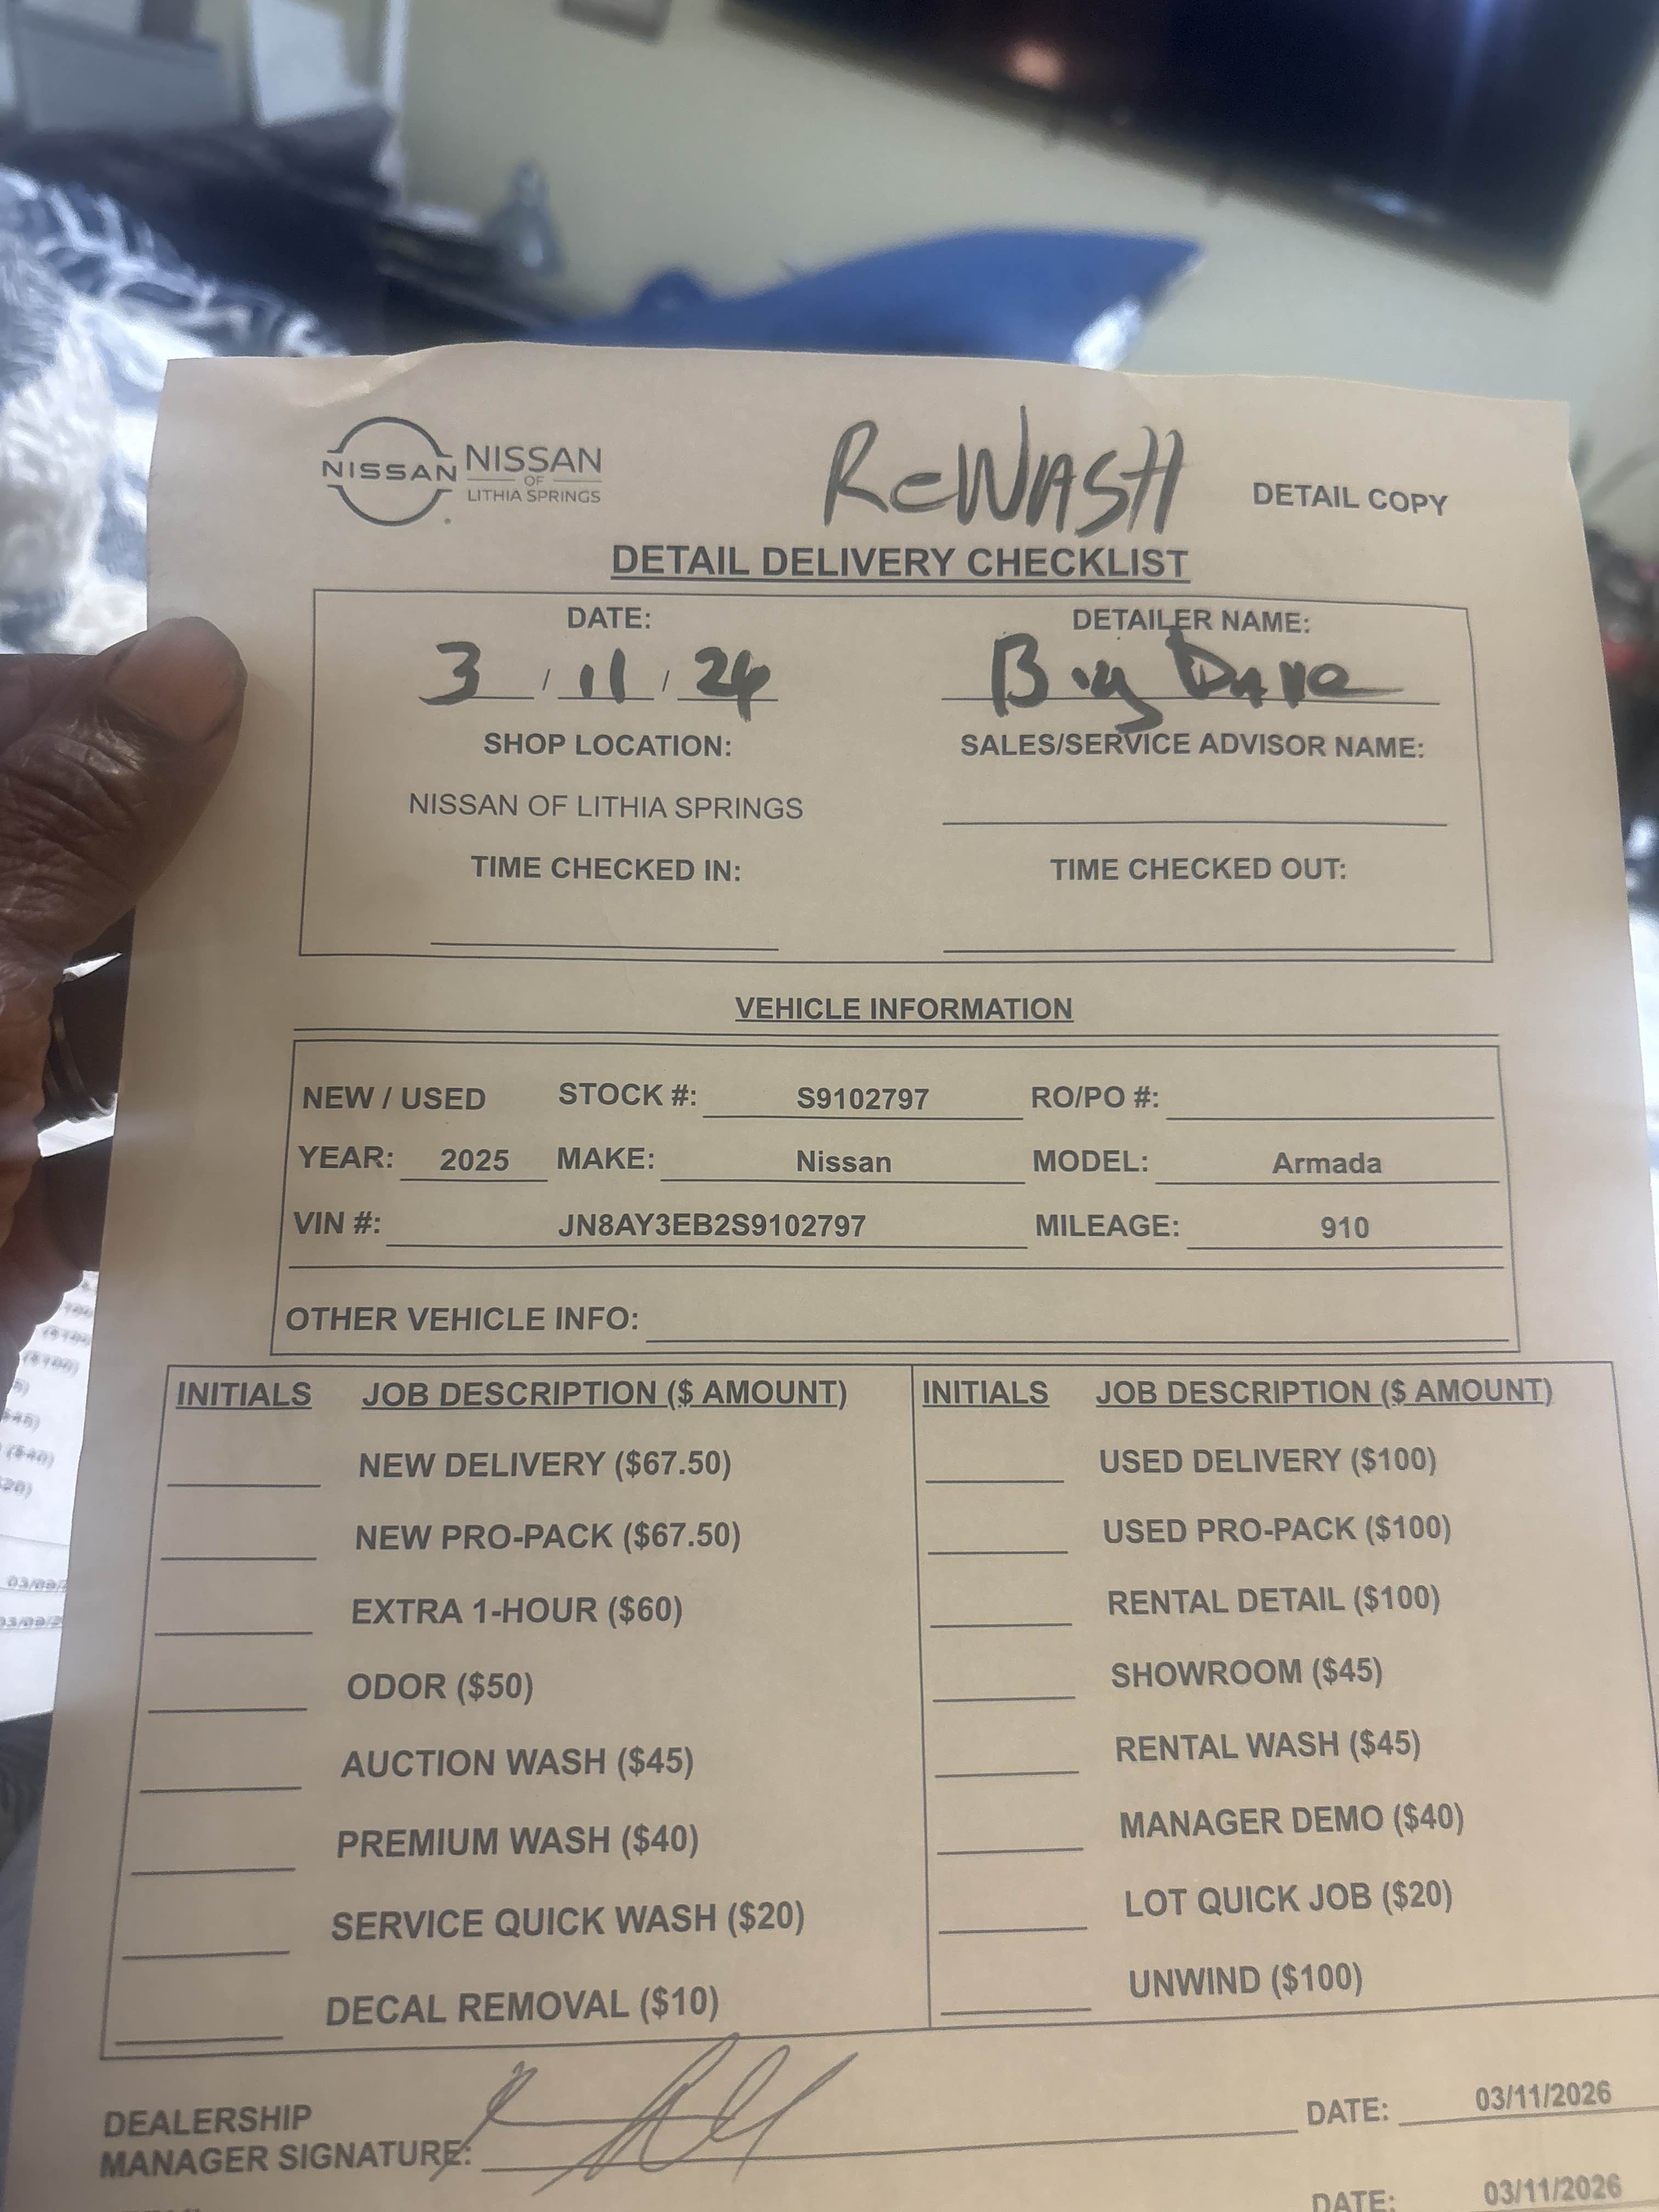 NISSAN NISSAN
OF
LITHIA SPRINGS
ReWASH
DETAIL COPY
DETAIL DELIVERY CHECKLIST
DATE: DETAILER NAME:
3 / 11 / 26 Big Dave
SHOP LOCATION: SALES/SERVICE ADVISOR NAME:
NISSAN OF LITHIA SPRINGS
TIME CHECKED IN: TIME CHECKED OUT:
VEHICLE INFORMATION
NEW / USED STOCK #: S9102797 RO/PO #:
YEAR: 2025 MAKE: Nissan MODEL: Armada
VIN #: JN8AY3EB2S9102797 MILEAGE: 910
OTHER VEHICLE INFO:
INITIALS JOB DESCRIPTION ($ AMOUNT) INITIALS JOB DESCRIPTION ($ AMOUNT)
NEW DELIVERY ($67.50) USED DELIVERY ($100)
NEW PRO-PACK ($67.50) USED PRO-PACK ($100)
EXTRA 1-HOUR ($60) RENTAL DETAIL ($100)
ODOR ($50) SHOWROOM ($45)
AUCTION WASH ($45) RENTAL WASH ($45)
PREMIUM WASH ($40) MANAGER DEMO ($40)
SERVICE QUICK WASH ($20) LOT QUICK JOB ($20)
DECAL REMOVAL ($10) UNWIND ($100)
DEALERSHIP
MANAGER SIGNATURE: DATE: 03/11/2026
DATE: 03/11/2026